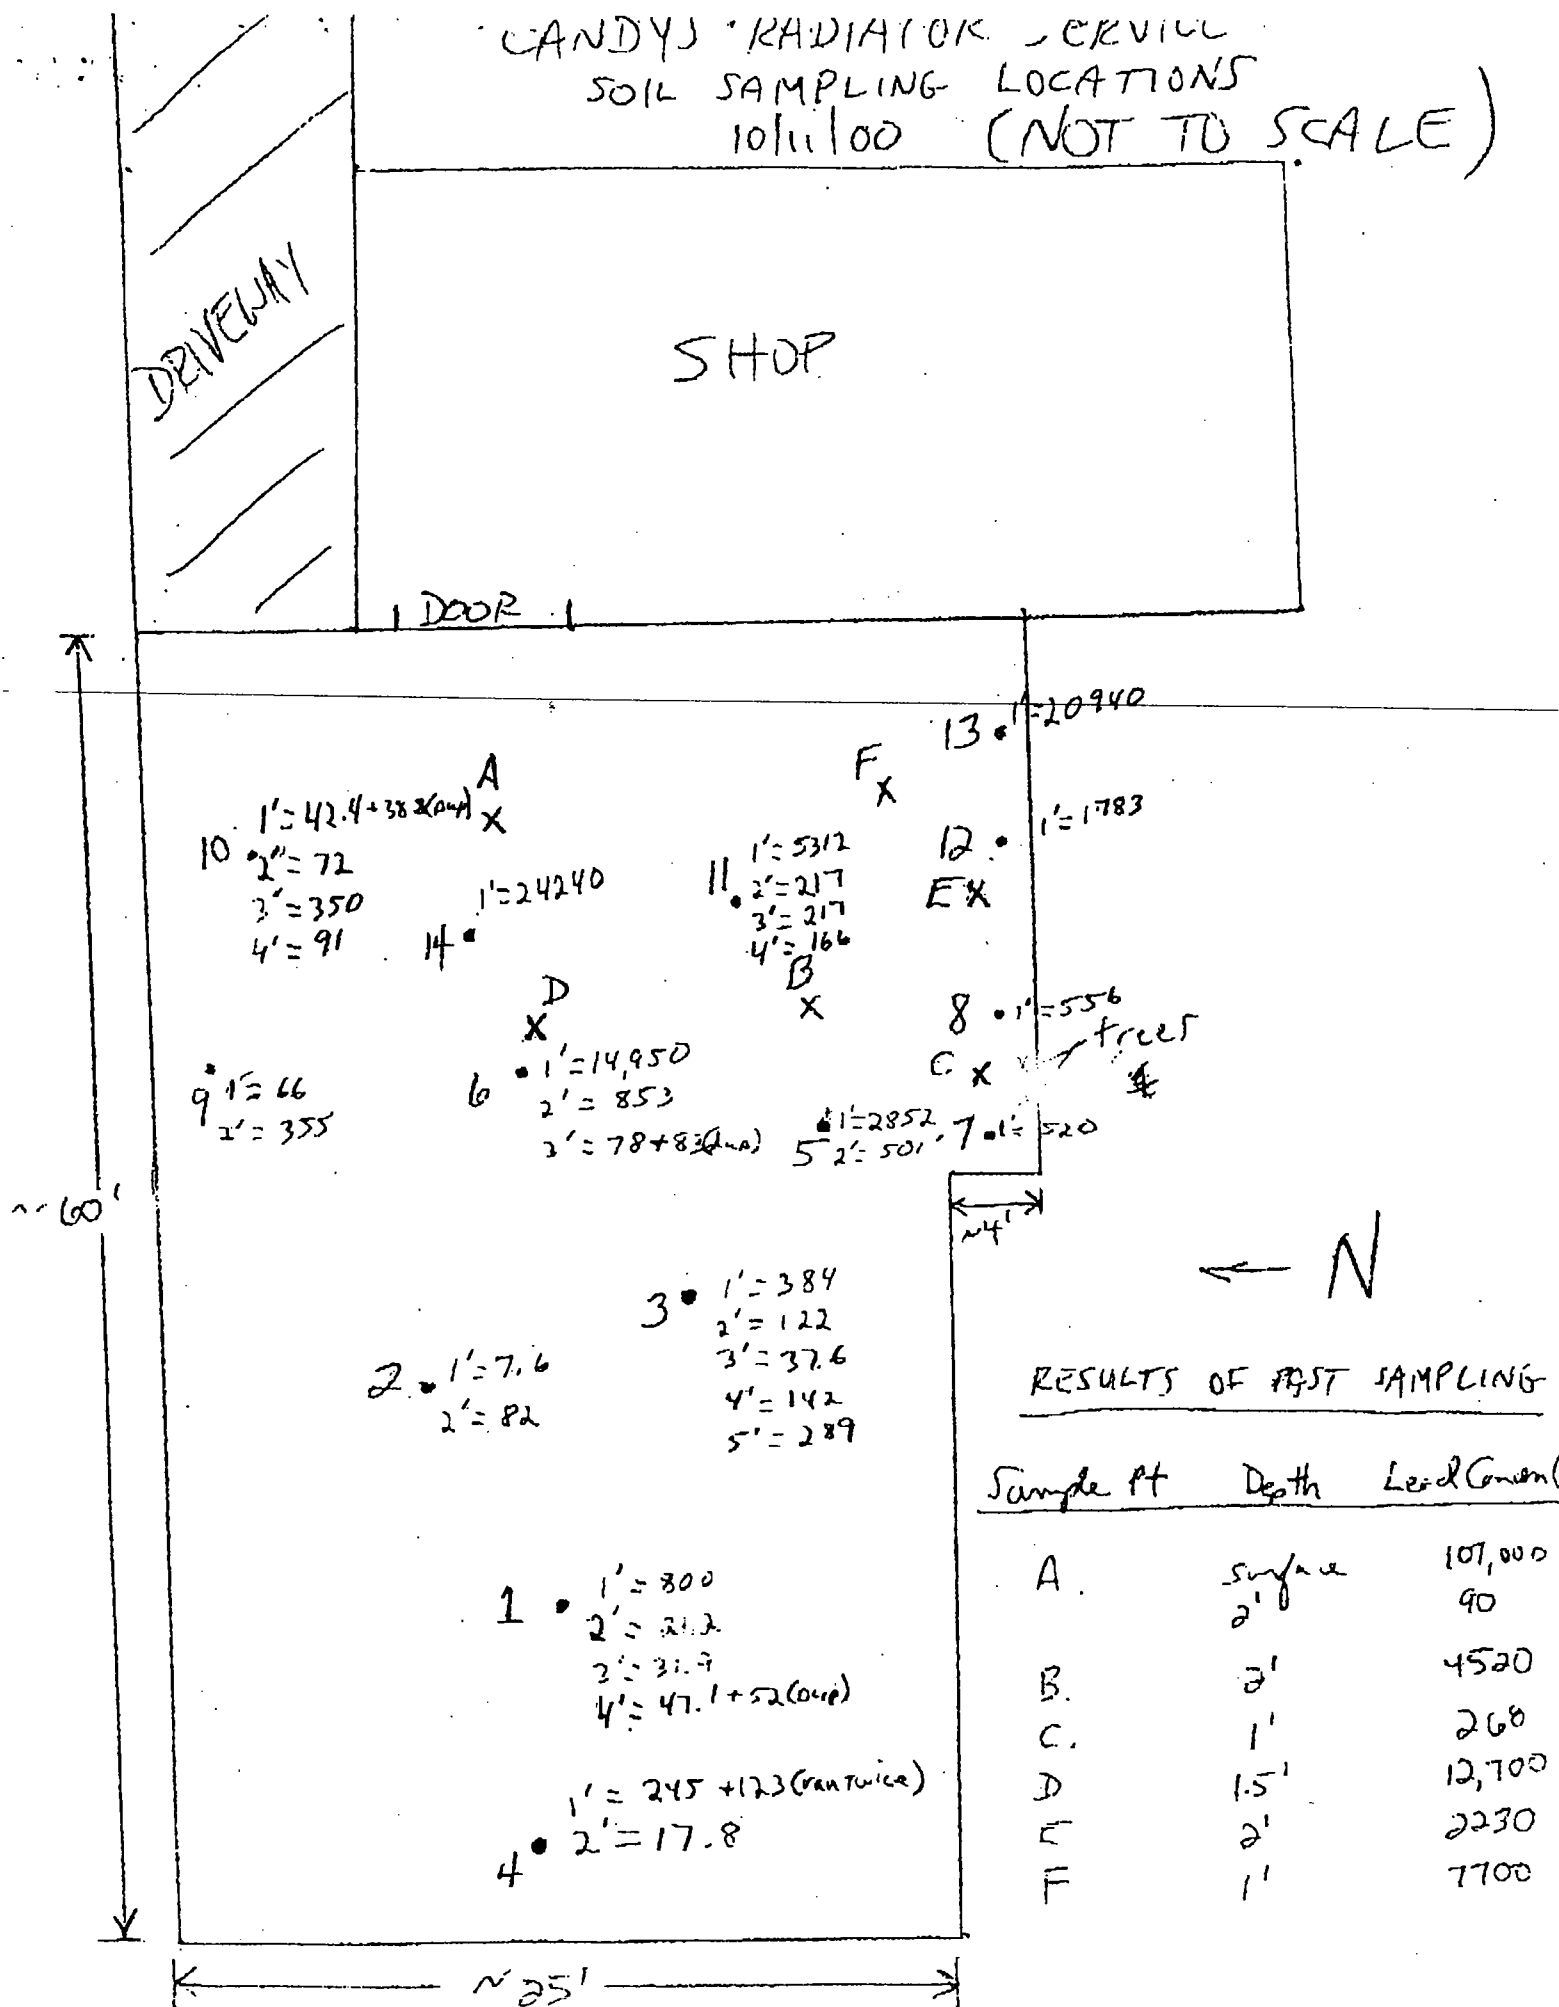 SOIL SAMPLING LOCATIONS
10/11/00 (NOT TO SCALE)
DRIVEWAY
SHOP
DOOR
13 1'=20940
F
X
A
X
10
1'=42.4+38.8(Dup)
2'=72
3'=350
4'=91
12 1'=1783
E X
11
1'=5312
2'=217
3'=217
4'=166
14 1'=24240
B
X
D
X
8 1'=556
trees
C X
9
1'=66
2'=355
6
1'=14,950
2'=853
3'=78+83(dup)
5
1'=2852
2'=501
7 1'=520
~60'
~4'
N
3
1'=384
2'=122
3'=37.6
4'=142
5'=289
2
1'=7.6
2'=82
1
1'=800
2'=21.2
3'=31.9
4'=47.1+52(Dup)
1'=245+123(ran twice)
4 2'=17.8
~25'
RESULTS OF PAST SAMPLING
Sample Pt Depth Lead
A. surface 107,000
2' 90
B. 2' 4520
C. 1' 268
D 1.5' 12,700
E 2' 2230
F 1' 7700